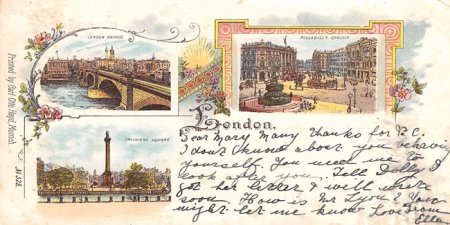 LONDON BRIDGE
PICCADILLY CIRCUS
TRAFALGAR SQUARE
Printed by Carl Otto Hayd, Munich.
No 528.
London.
Dear Mary Many Thanks for P.C.
I dont know about you behaving
yourself. You need me to
look after you. Tell Dolly I
got her letter & will write
soon. How is You
might let me know Love from
Ella